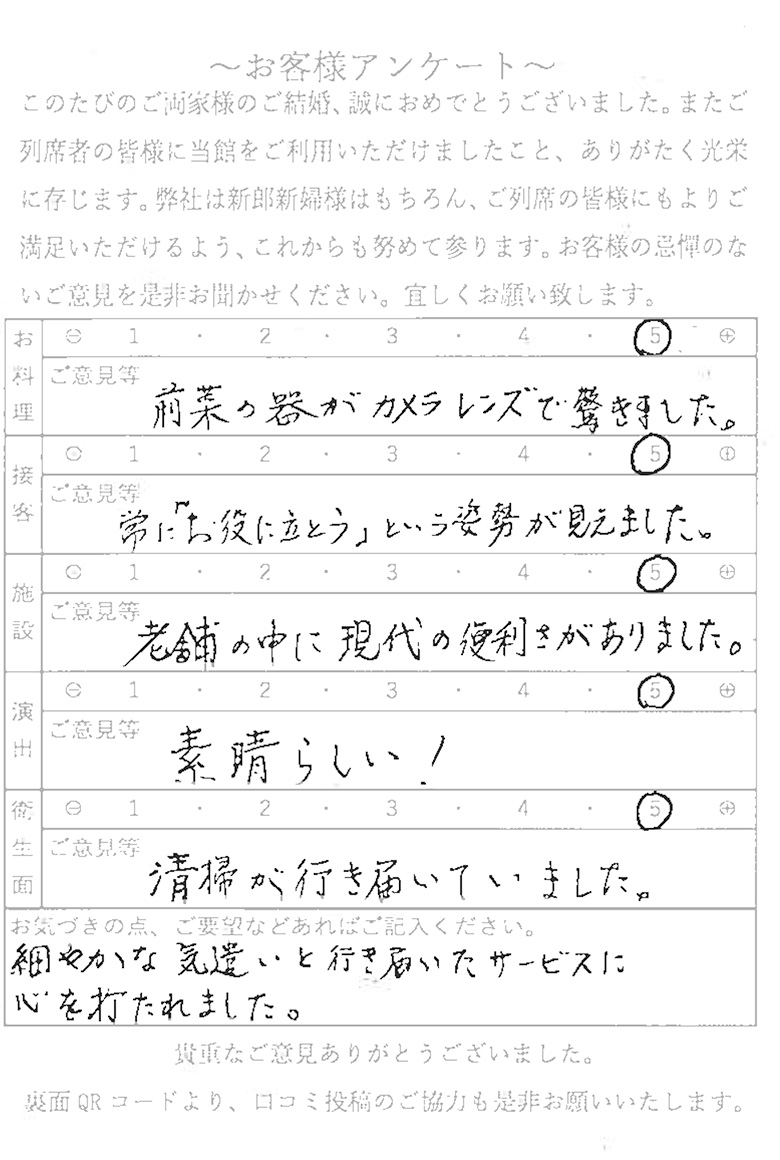 ～お客様アンケート～
このたびのご両家様のご結婚、誠におめでとうございました。またご
列席者の皆様に当館をご利用いただけましたこと、ありがたく光栄
に存じます。弊社は新郎新婦様はもちろん、ご列席の皆様にもよりご
満足いただけるよう、これからも努めて参ります。お客様の忌憚のな
いご意見を是非お聞かせください。宜しくお願い致します。
お料理 ⊖ 1 ・ 2 ・ 3 ・ 4 ・ 5 ⊕
ご意見等
前菜の器がカメラレンズで驚きました。
接客 ⊖ 1 ・ 2 ・ 3 ・ 4 ・ 5 ⊕
ご意見等
常に「お役に立とう」という姿勢が見えました。
施設 ⊖ 1 ・ 2 ・ 3 ・ 4 ・ 5 ⊕
ご意見等
老舗の中に現代の便利さがありました。
演出 ⊖ 1 ・ 2 ・ 3 ・ 4 ・ 5 ⊕
ご意見等
素晴らしい!
衛生面 ⊖ 1 ・ 2 ・ 3 ・ 4 ・ 5 ⊕
ご意見等
清掃が行き届いていました。
お気づきの点、ご要望などあればご記入ください。
細やかな気遣いと行き届いたサービスに
心を打たれました。
貴重なご意見ありがとうございました。
裏面QRコードより、口コミ投稿のご協力も是非お願いいたします。